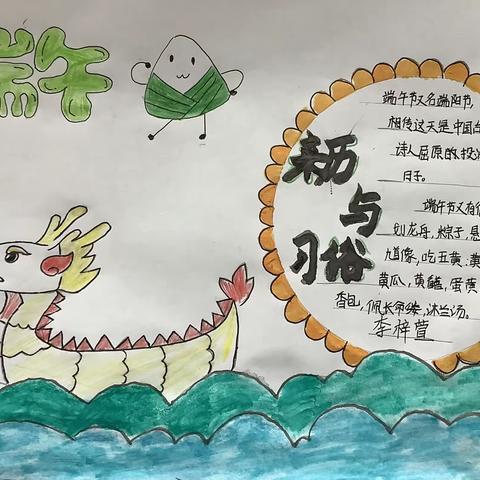 端午
来历
与
习俗
端午节又名端阳节,
相传这天是中国古
诗人屈原的投
日子。
端午节又有
划龙舟,粽子,悬
旭像,吃五黄:黄
黄瓜,黄鳝,蛋黄
香包,佩长命缕,沐兰汤。
李梓萱